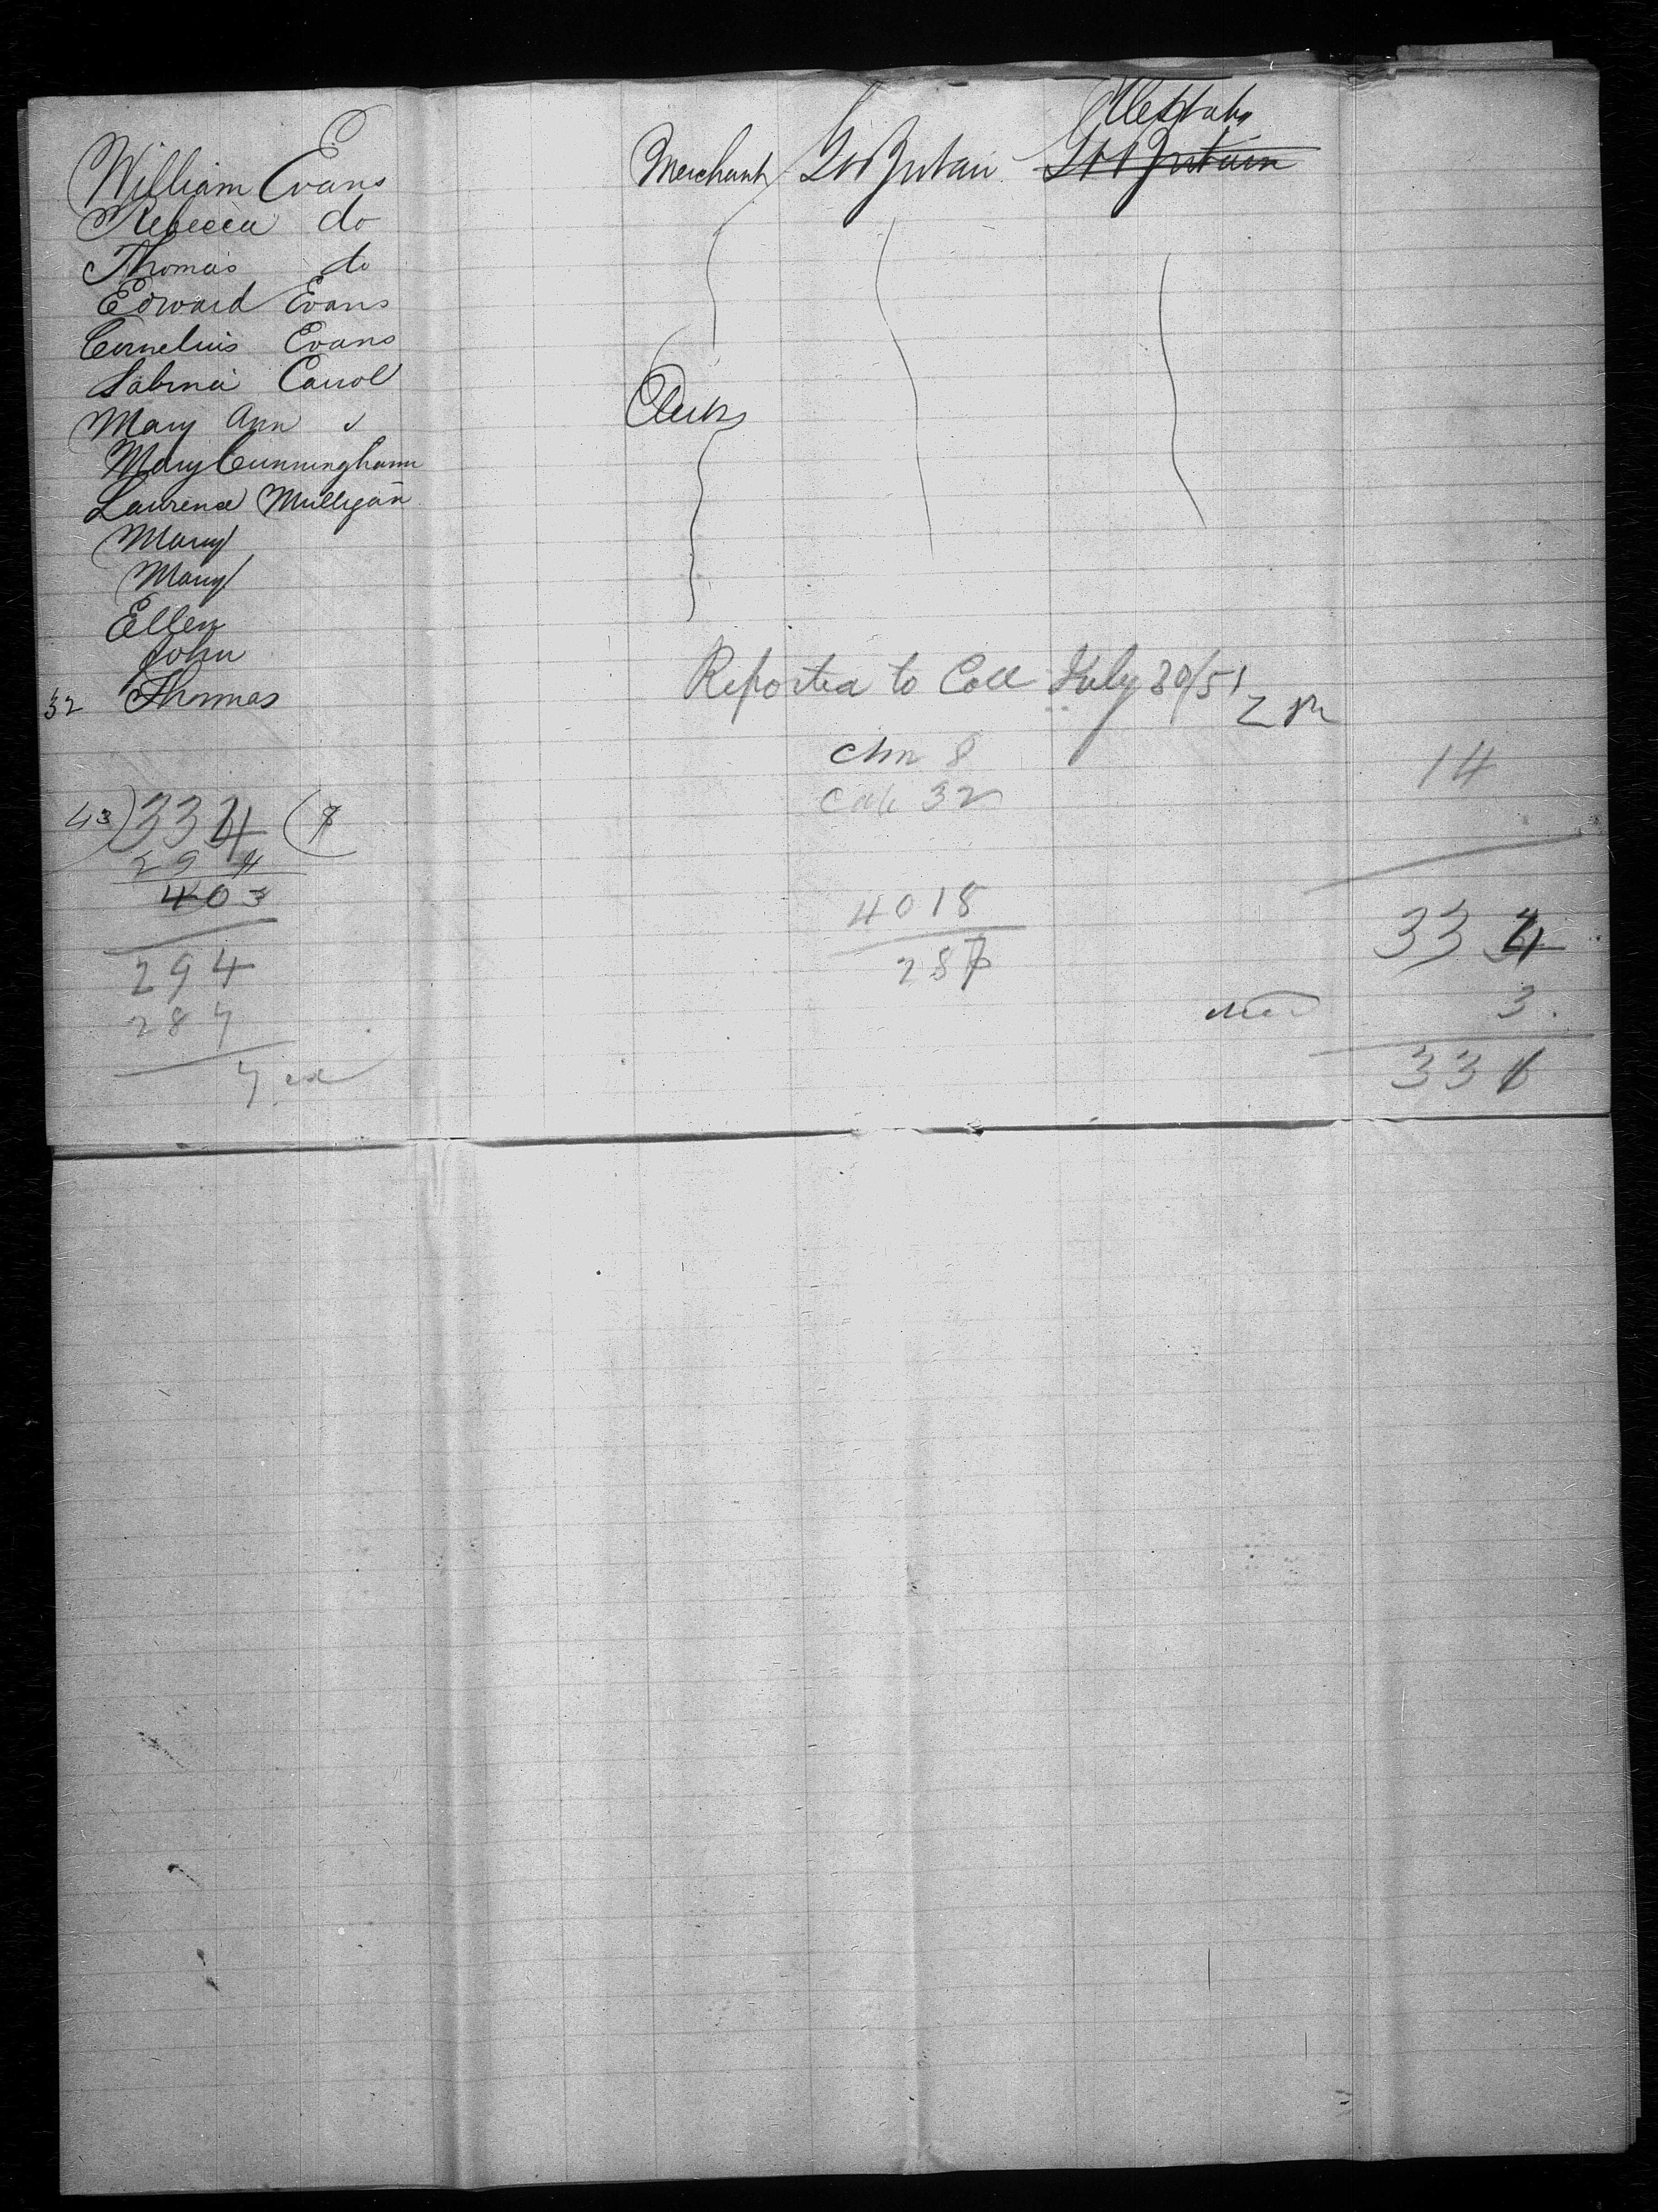 U States
William Evans Merchant Gt Britain Gt Britain
Rebecca do
Thomas do
Edward Evans
Cornelius Evans
Sabina Carrol Clerk
Mary Ann
Mary Cunningham
Laurence Mulligan
Mary
Mary
Ellen
John
32 Thomas
Reported to Coll July 30/51
chn 8
14
43) 334 (8
294
403
4018
334
294
287
3
287
336
7